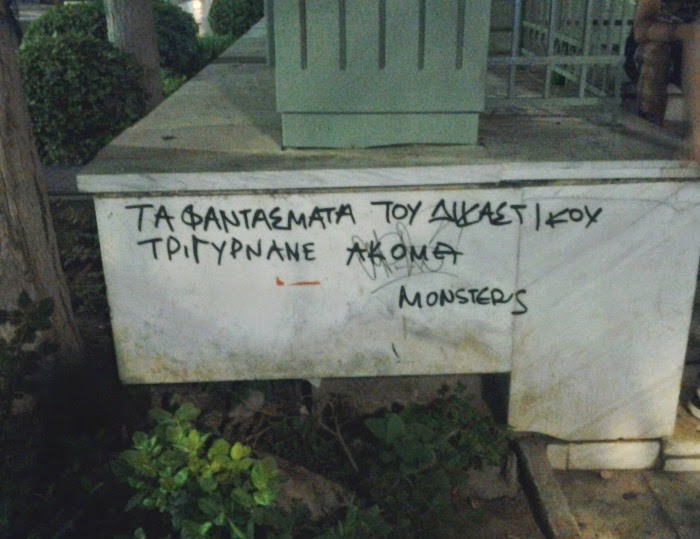 ΤΑ ΦΑΝΤΑΣΜΑΤΑ ΤΟΥ ΔΙΚΑΣΤΙΚΟΥ
ΤΡΙΓΥΡΝΑΝΕ ΑΚΟΜΑ
MONSTERS